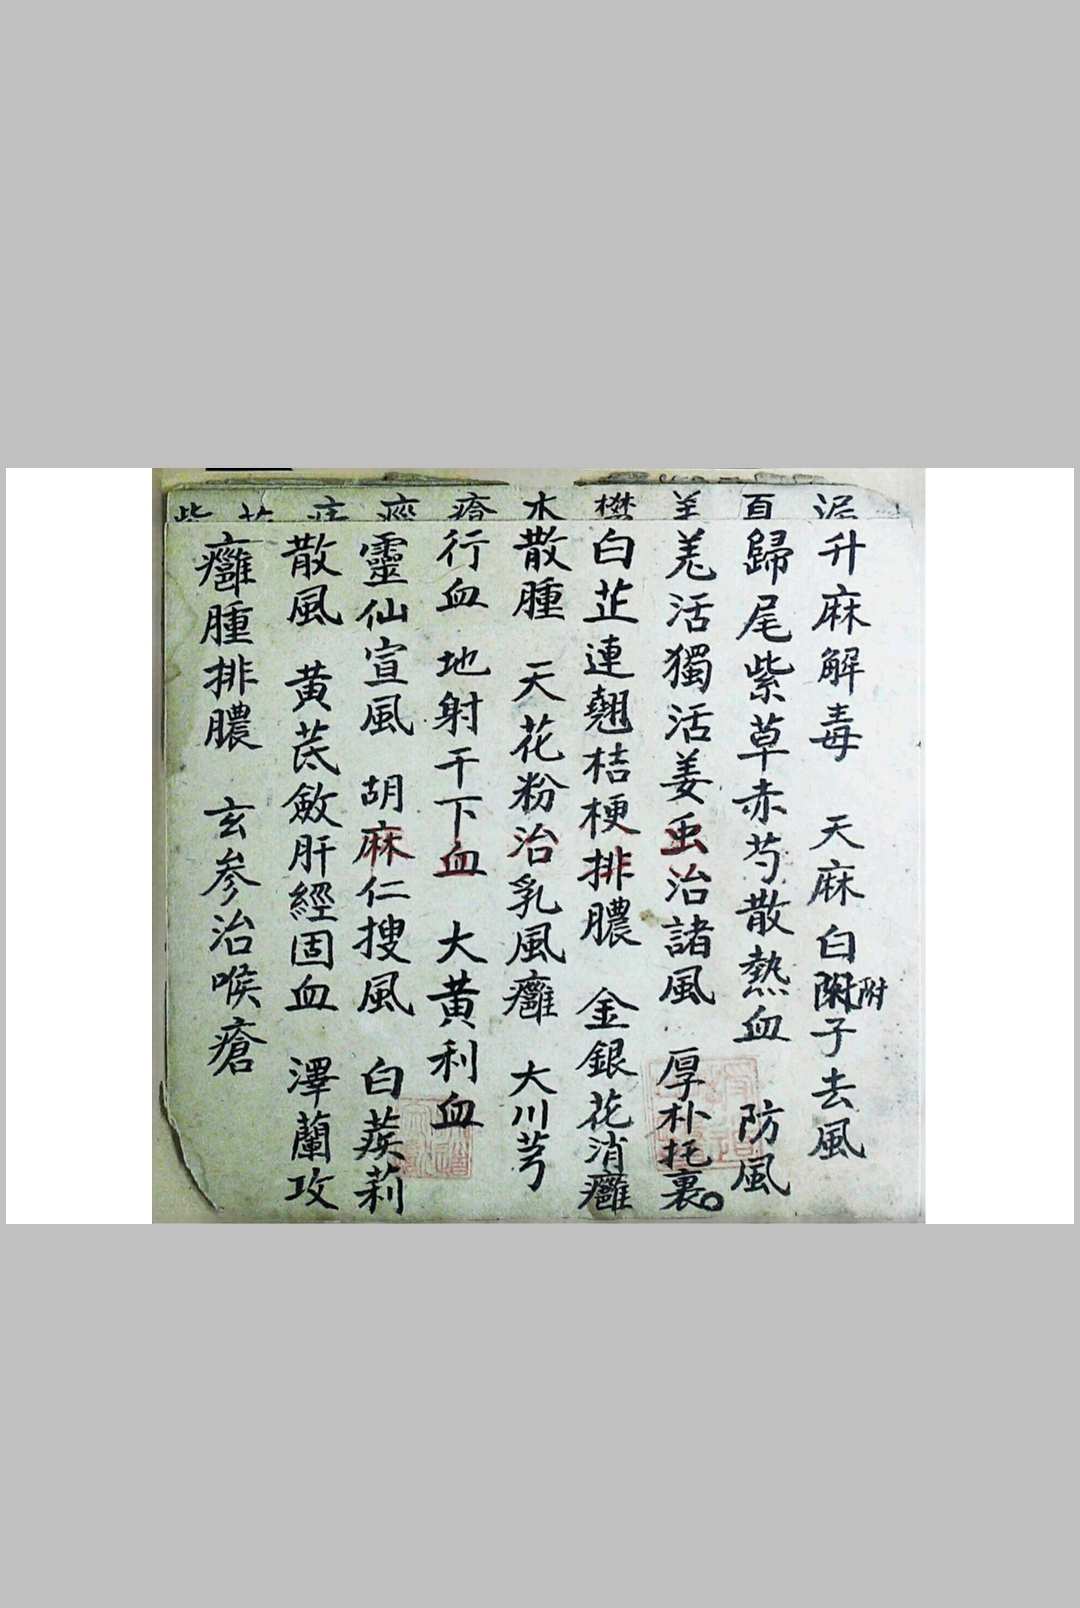 升麻解毒　天麻白附子去風
附
歸尾紫草赤芍散熱血　防風
羌活獨活姜虫治諸風　厚朴托裏。
白芷連翹桔梗排膿　金銀花消癰
散腫　天花粉治乳風癰　大川芎
行血　地射干下血　大黃利血
靈仙宣風　胡麻仁搜風　白蒺莉
散風　黄芪斂肝經固血　澤蘭攻
癰腫排膿　玄参治喉瘡